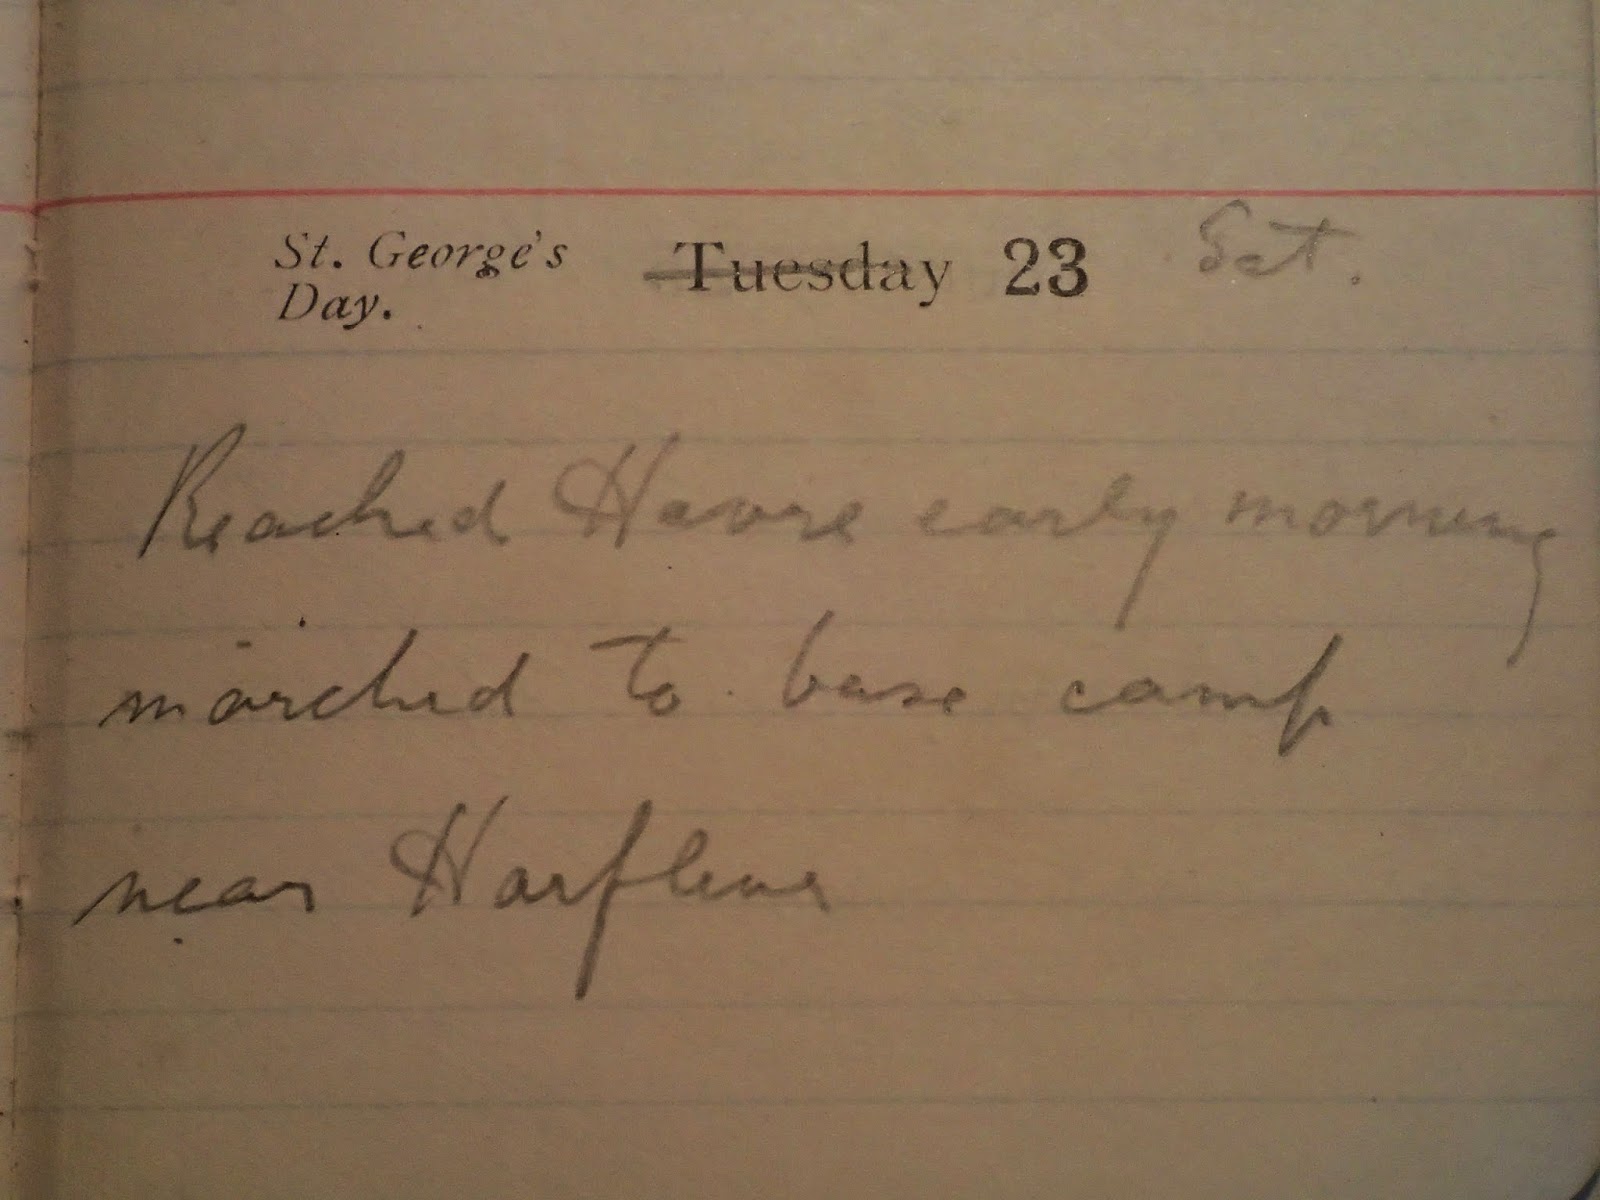 St. George's Day.
Tuesday 23 Sat.
Reached Havre early morning
marched to base camp
near Harfleur